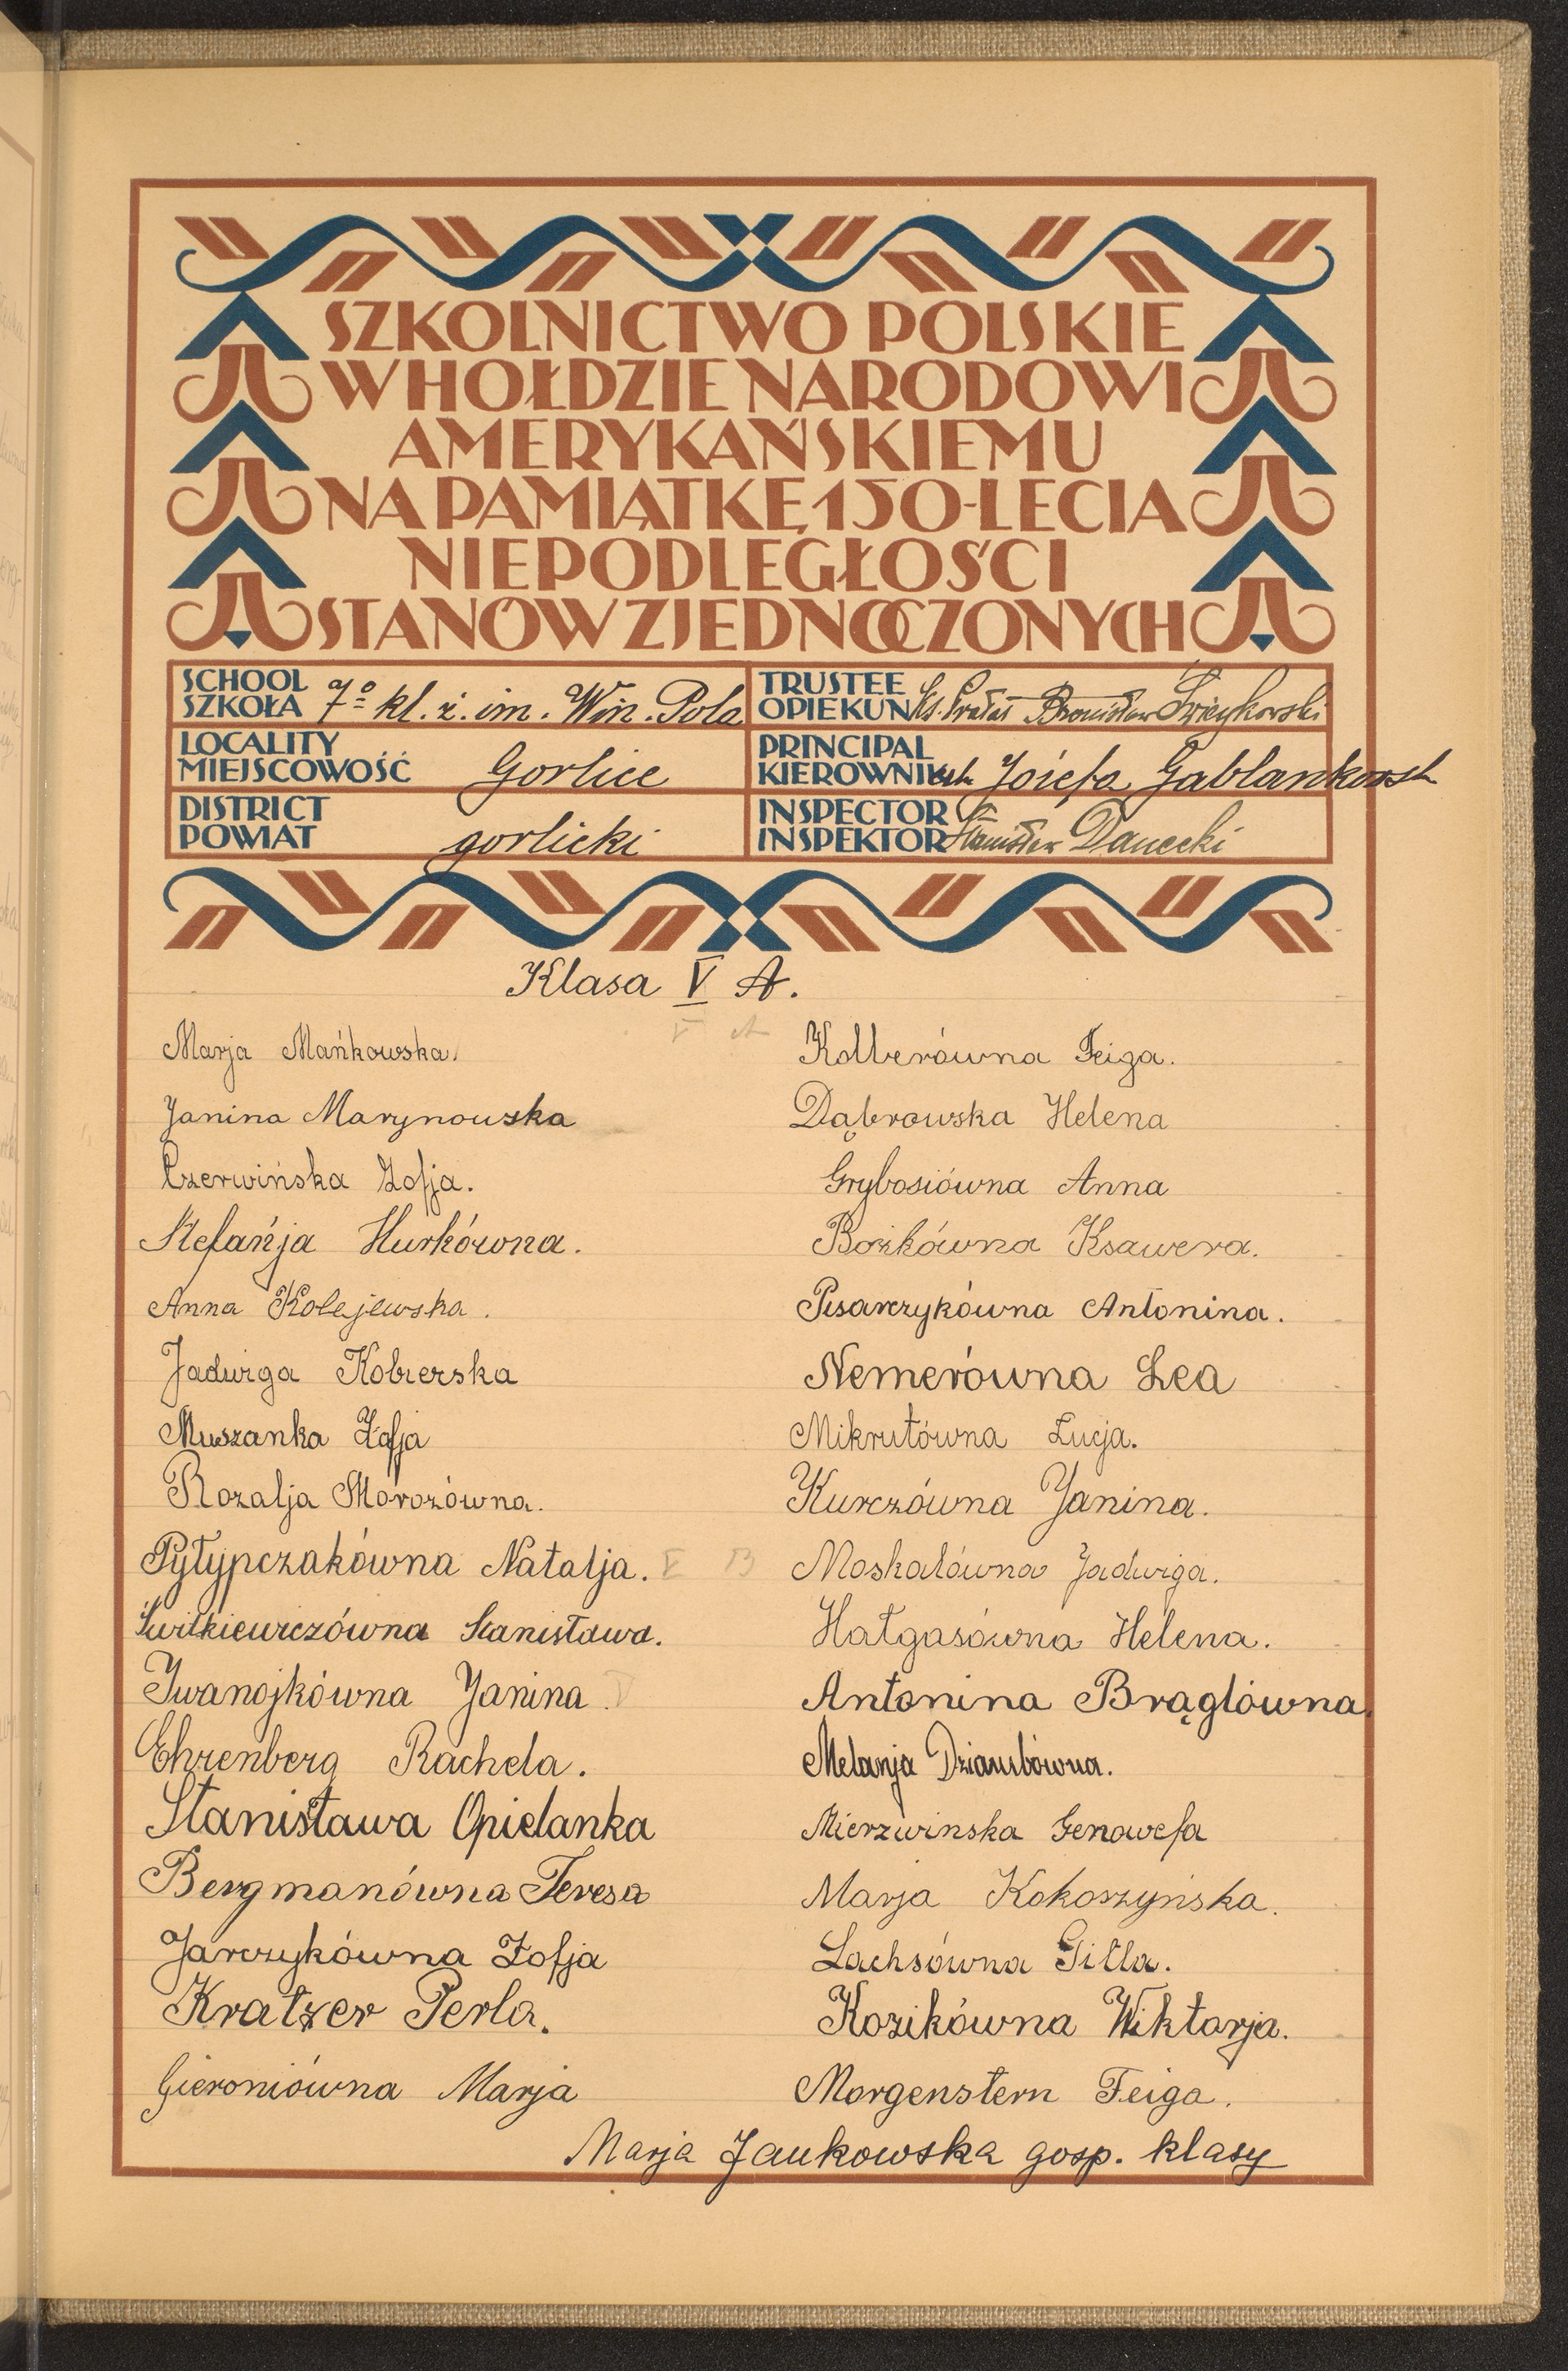 SZKOLNICTWO POLSKIE
W HOŁDZIE NARODOWI
AMERYKAŃSKIEMU
NA PAMIĄTKĘ 150-LECIA
NIEPODLEGŁOŚCI
STANÓW ZJEDNOCZONYCH
SCHOOL
SZKOŁA 7º kl. ż. im. Win. Pola
TRUSTEE
OPIEKUN Ks. Prałat Bronisław Świeykowski
LOCALITY
MIEJSCOWOŚĆ Gorlice
PRINCIPAL
KIEROWNIK Józefa Gablankowsk
DISTRICT
POWIAT gorlicki
INSPECTOR
INSPEKTOR Stanisław Danecki
Klasa V A.
V A
Marja Mańkowska.
Janina Marynowska
Czerwińska Zofja.
Stefańja Hurkówna.
Anna Kolejewska.
Jadwiga Kobierska
Muszanka Zofja
Rozalja Morozówna.
Pytypczakówna Natalja. V B
Świtkiewiczówna Stanisława.
Iwanojkówna Janina. V
Ehrenberg Rachela.
Stanisława Opielanka
Bergmanówna Teresa
Jarczykówna Zofja
Kratzer Perla.
Gieroniówna Marja
Kolberówna Feiga.
Dąbrowska Helena
Grybosiówna Anna
Bożkówna Ksawera.
Pisarczykówna Antonina.
Nemerówna Lea
Mikrutówna Łucja.
Kurczówna Janina.
Moskalówna Jadwiga.
Hałgasówna Helena.
Antonina Brąglówna.
Melanja Dziambówna.
Mierzwinska Genowefa
Marja Kokoszyńska.
Lachsówna Gitla.
Kozikówna Wiktorja.
Morgenstern Feiga.
Marja Jankowska gosp. klasy